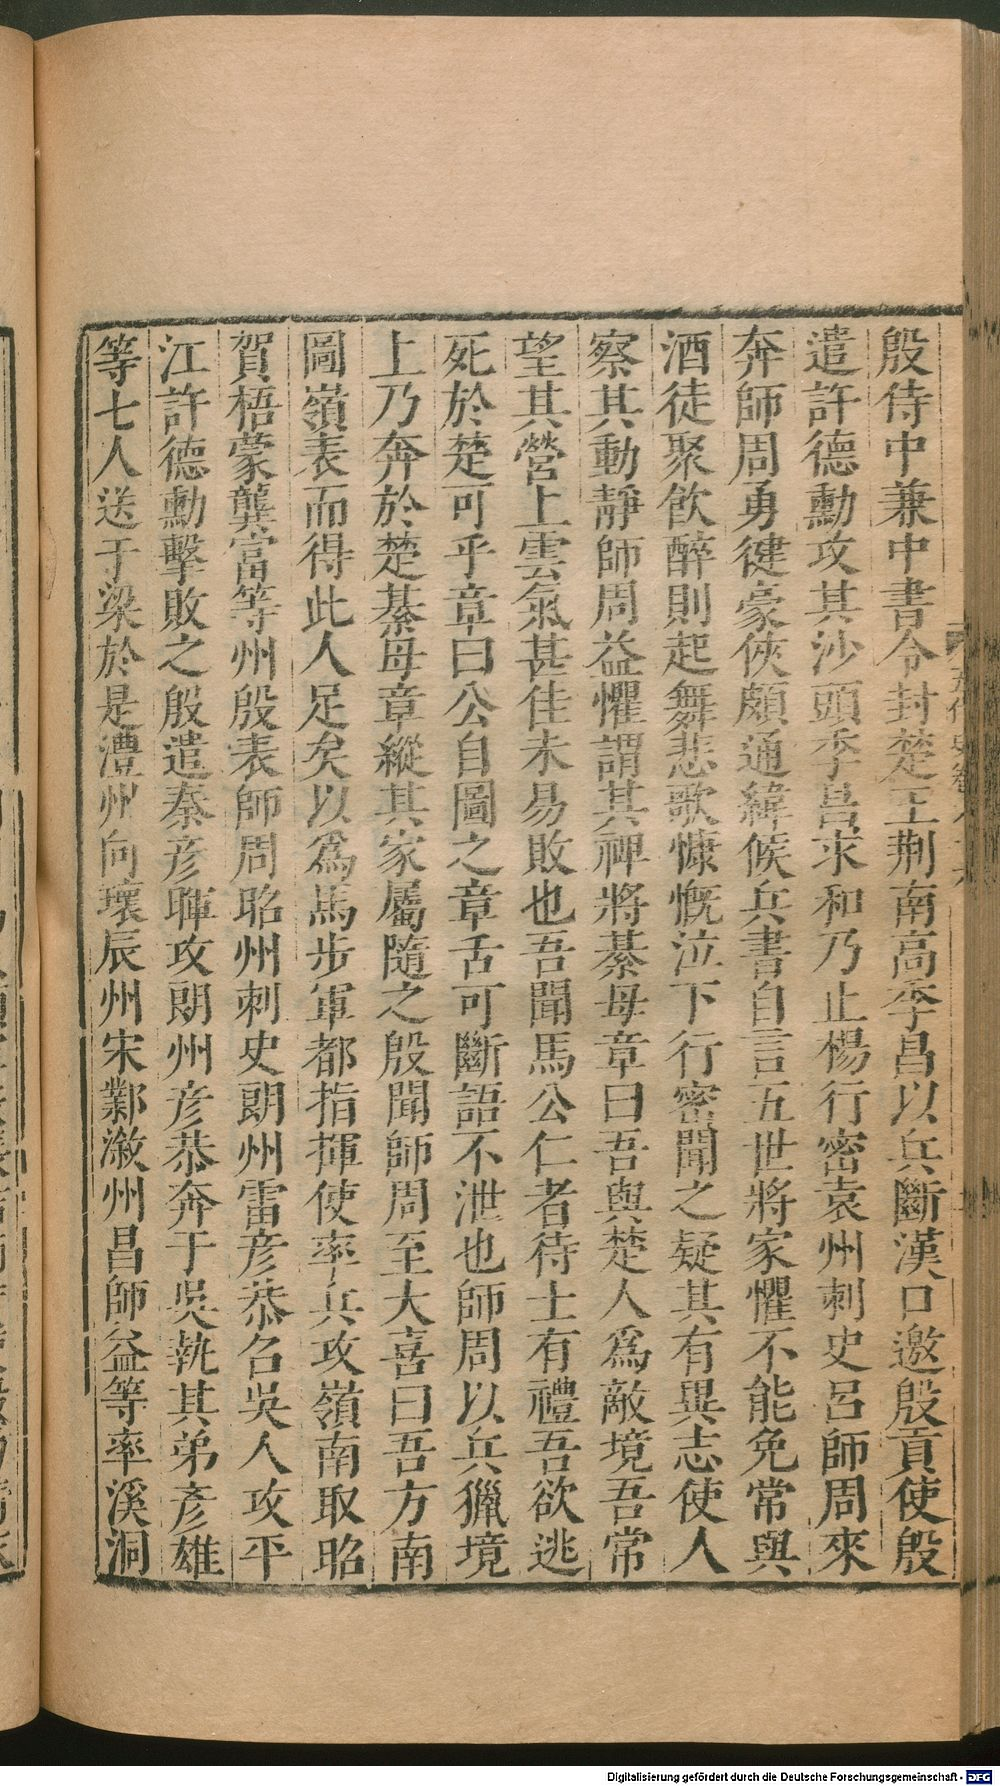 殷侍中兼中書令封楚王荆南高季昌以兵斷漢口邀殷貢使殷
遣許德勳攻其沙頭季昌求和乃止楊行密袁州刺史呂師周來
奔師周勇健豪俠頗通緯候兵書自言五世將家懼不能免常與
酒徒聚飲醉則起舞悲歌慷慨泣下行密聞之疑其有異志使人
察其動靜師周益懼謂其裨將綦母章曰吾與楚人爲敵境吾常
望其營上雲氣甚佳未易敗也吾聞馬公仁者待士有禮吾欲逃
死於楚可乎章曰公自圖之章舌可斷語不泄也師周以兵獵境
上乃奔於楚綦母章縱其家屬隨之殷聞師周至大喜曰吾方南
圖嶺表而得此人足矣以爲馬步軍都指揮使率兵攻嶺南取昭
賀梧蒙龔富等州殷表師周昭州刺史朗州雷彥恭召吳人攻平
江許德勳擊敗之殷遣秦彥暉攻朗州彥恭奔于吳執其弟彥雄
等七人送于梁於是澧州向瓌辰州宋鄴漵州昌師益等率溪洞
Digitalisierung gefördert durch die Deutsche Forschungsgemeinschaft - DFG